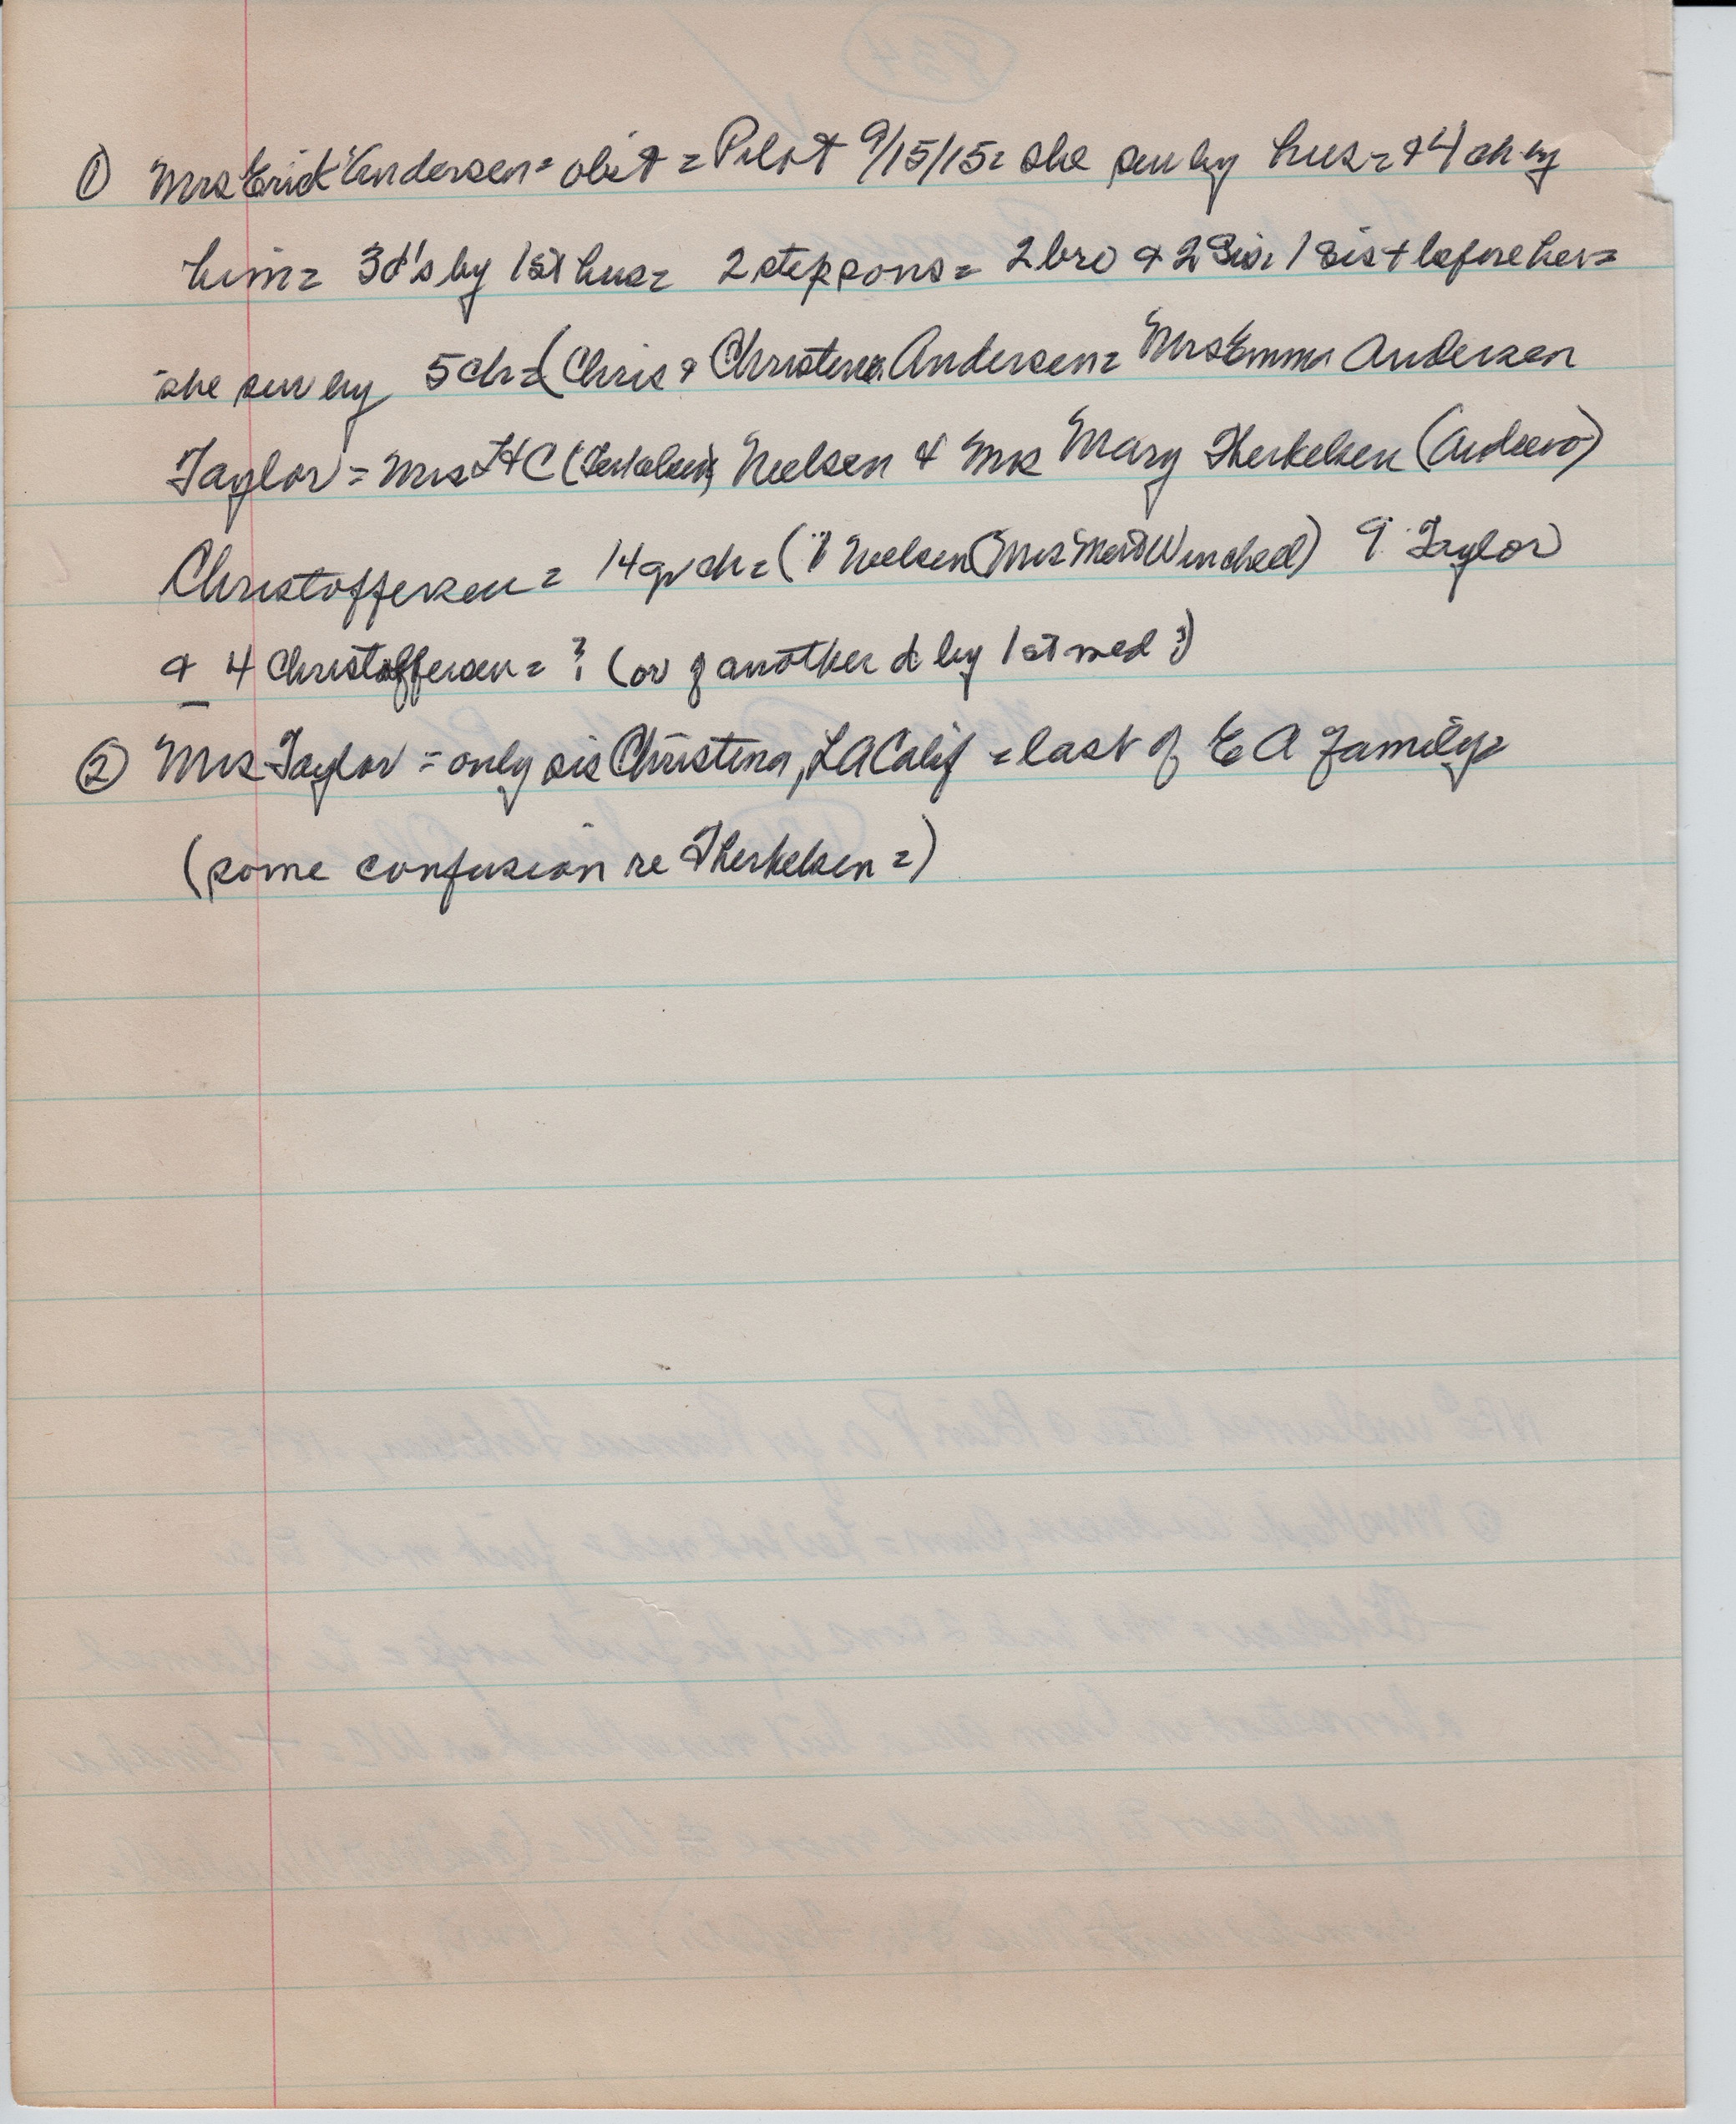 ① Mrs Erick Andersen = obit = Pilot 9/15/15 = she sur by hus = & 4 ch by
him = 3 d's by 1st hus = 2 step sons = 2 bro & 2 sis = 1 sis + before her =
she sur by 5 ch = (Chris & Christena Andersen = Mrs Emma Andersen
Taylor = Mrs H C ( Nielsen & Mrs Mary Therkelsen
Christoffersen = 14 gr ch = ( Nielsen (Mrs Winchell) 9 Taylor
& 4 Christoffersen = ? (or of another d by 1st med ?)
② Mrs Taylor = only sis Christena, LA Calif = last of E A family =
(some confusion re Therkelsen =)